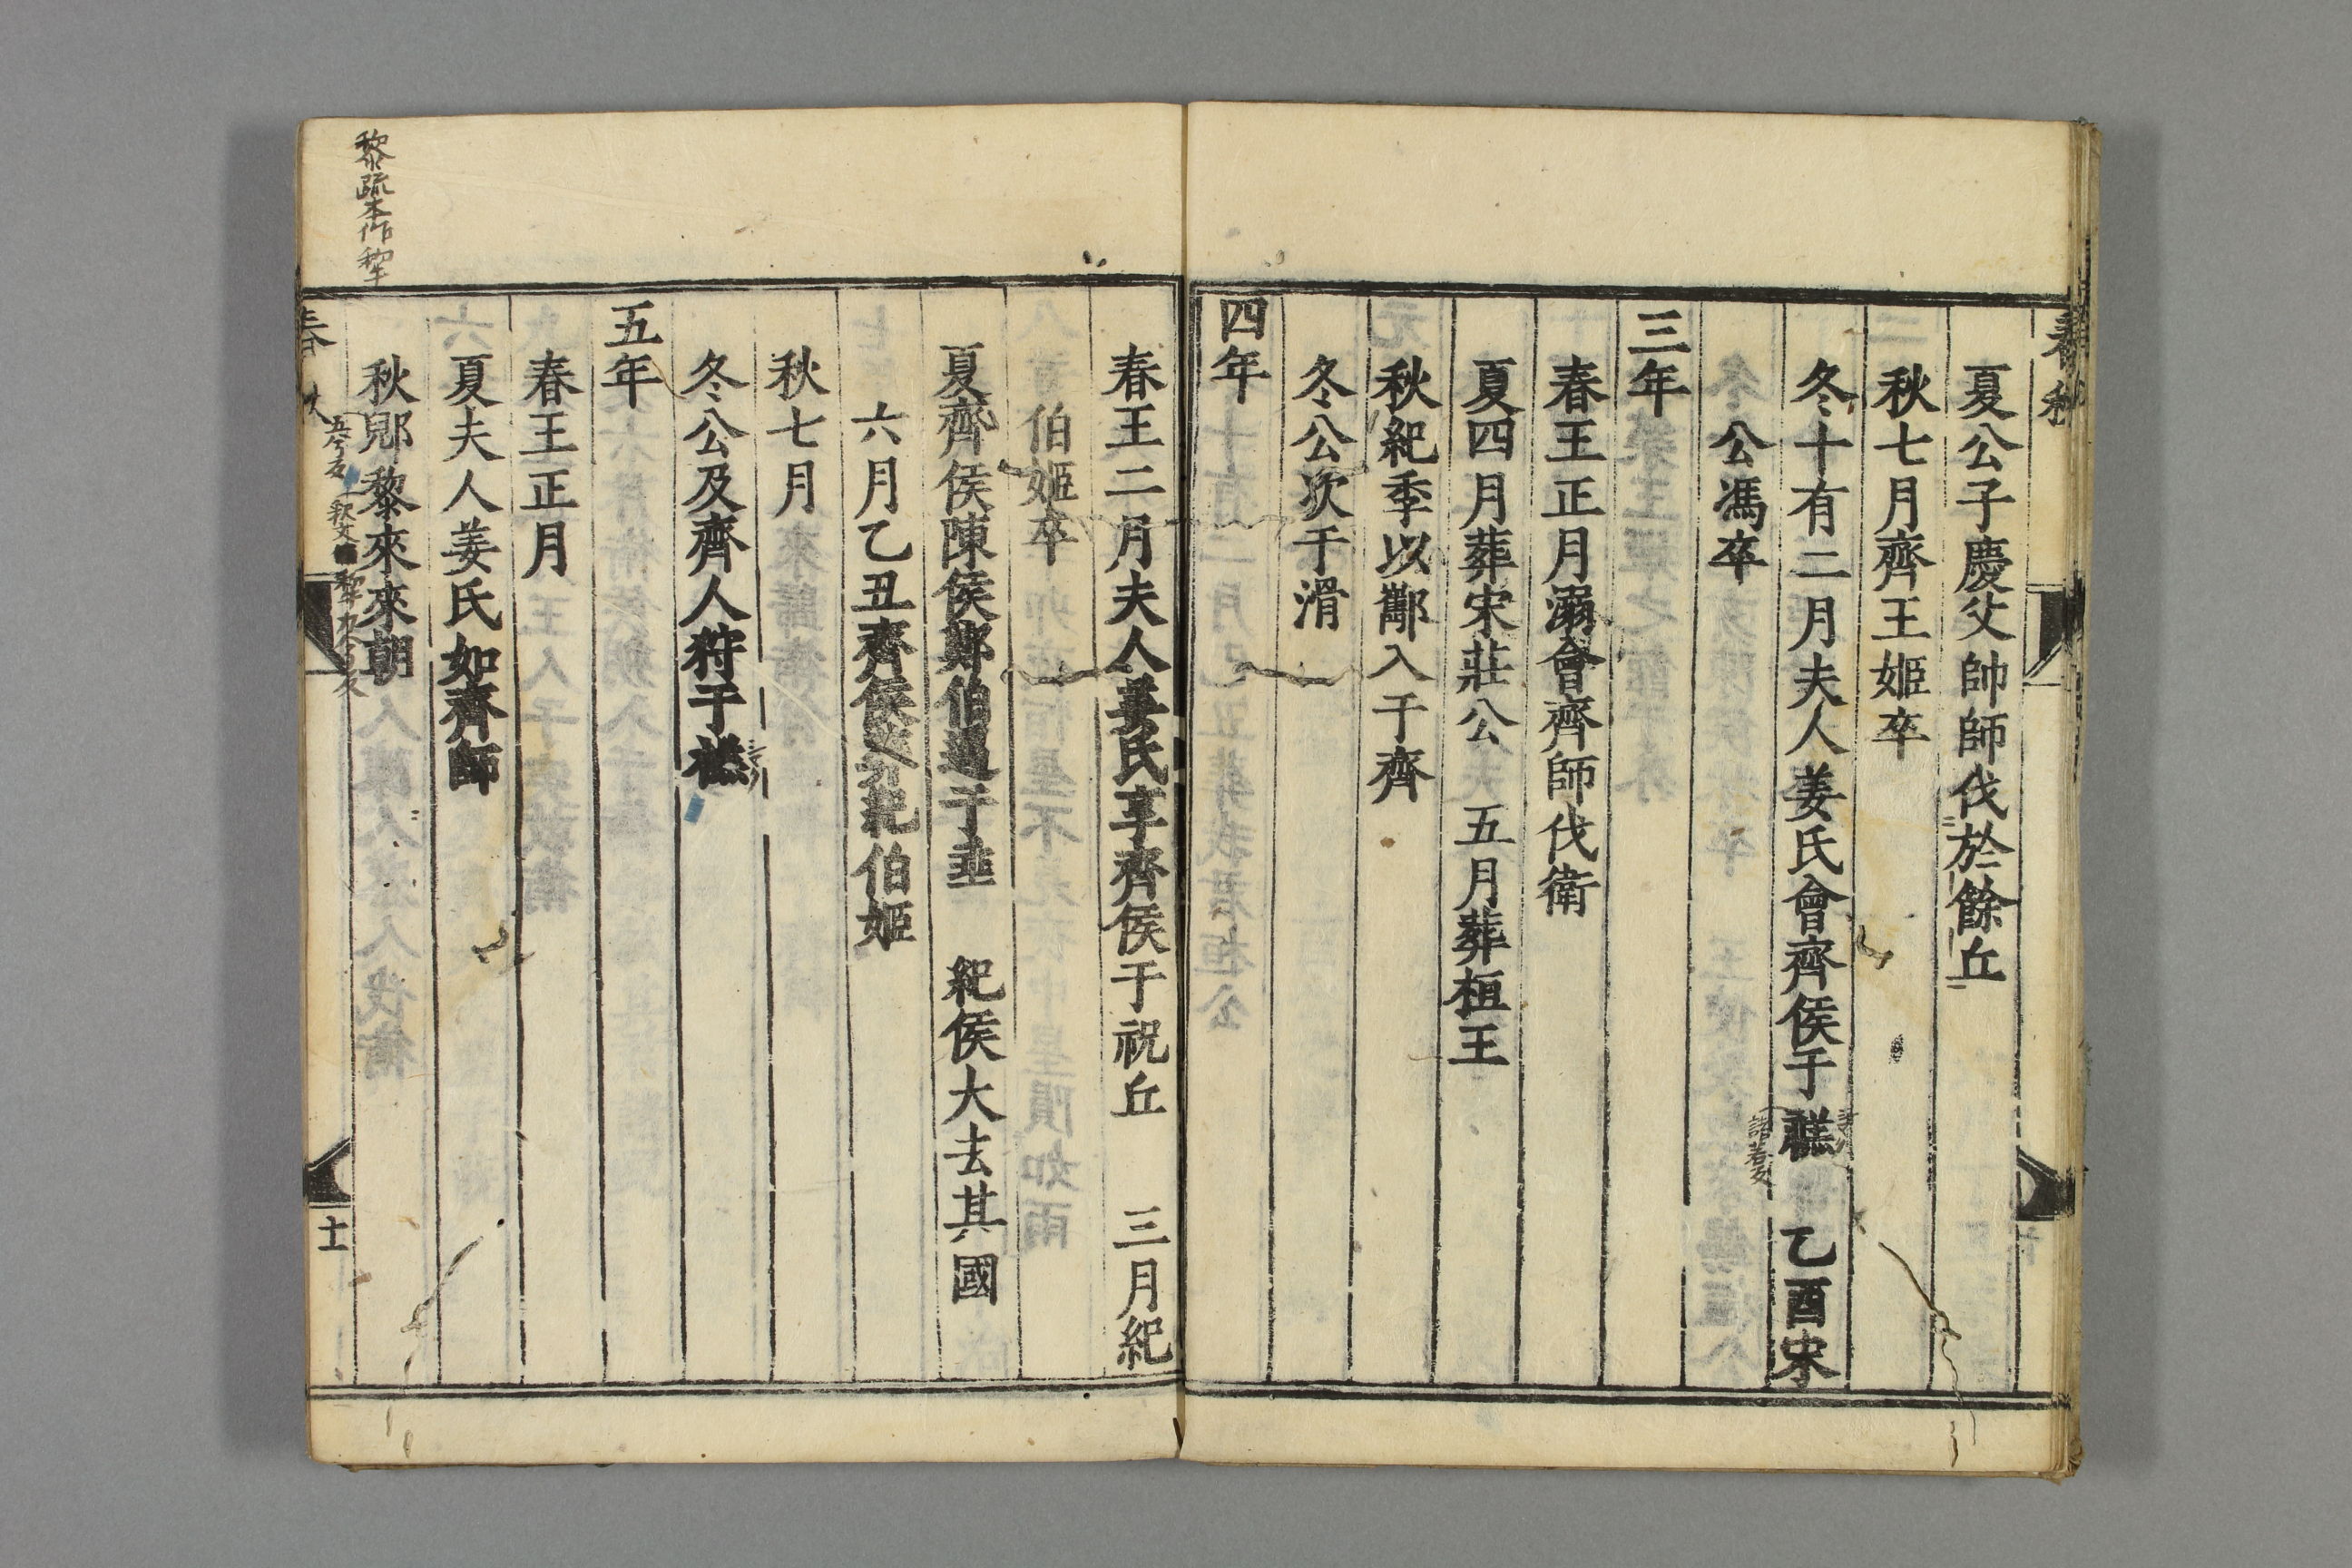 春秋
夏公子慶父帥師伐於餘丘
秋七月齊王姬卒
冬十有二月夫人姜氏會齊侯于禚　乙酉宋
公馮卒
三年
春王正月溺會齊師伐衛
夏四月葬宋莊公　五月葬桓王
秋紀季以酅入于齊
冬公次于滑
四年
春王二月夫人姜氏享齊侯于祝丘　三月紀
伯姬卒
夏齊侯陳侯鄭伯遇于垂　紀侯大去其國
六月乙丑齊侯葬紀伯姬
秋七月
冬公及齊人狩于禚
五年
春王正月
夏夫人姜氏如齊師
秋郳黎來來朝
黎疏本作犂
春秋
十一